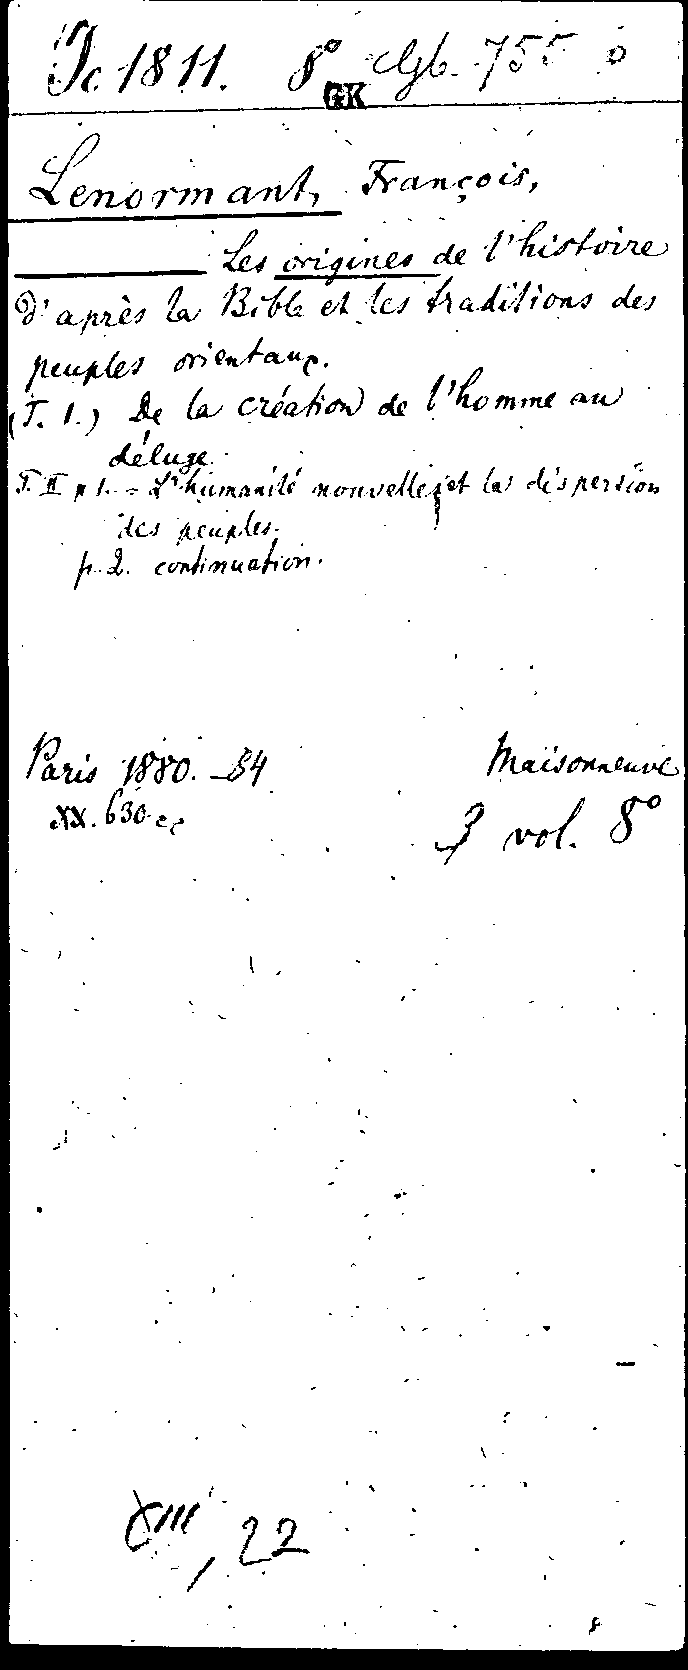 Jc 1811. 8° 755
GK
Lenormant, François,
Les origines de l'histoire
d'après la Bible et les traditions des
peuples orientaux.
(T. 1.) De la création de l'homme au
déluge.
T. II p 1. = L'humanité nouvelle et la dispersion
des peuples.
p. 2. continuation.
Paris 1880. -84 Maisonneuve
XX. 630
3 vol. 8°
XIII, 22